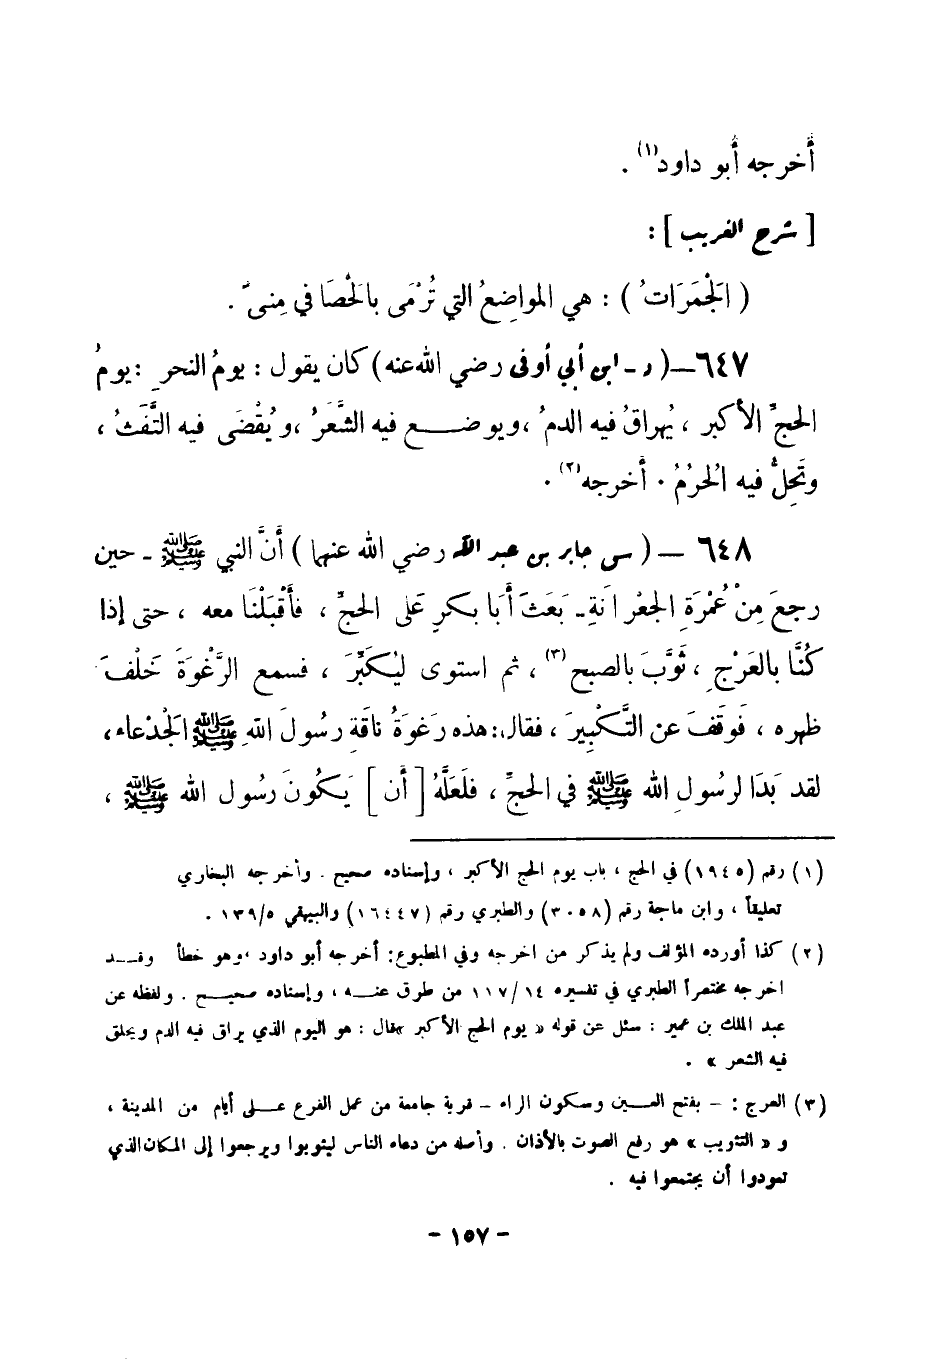 أُخرجه أبو داود(١) .
[ شرح الغريب ] :
( الَجْمَرَاتُ ) : هي المواضِعُ التي تُرْمَى بالَحْصَا في مِنىً .
٦٤٧ – ( د - ابن أبي أوفى رضي الله عنه ) كان يقول : يومُ النحرِ : يومُ
الحجِّ الأكبرِ ، يُهراقُ فيه الدمُ ، ويوضع فيه الشَّعَرُ ، ويُقْضَى فيه التَّفَثُ ،
وتَحِلُّ فيه الُحرُمُ . أخرجه(٢) .
٦٤٨ – ( س - جابر بن عبد الله رضي الله عنهما ) أَنَّ النبي ﷺ - حين
رجعَ مِنْ عُمْرَةِ الِجعْرَانَةِ - بَعَثَ أَبَا بكرٍ عَلَى الحجِّ ، فأَقْبَلْنَا معه ، حتى إذا
كُنَّا بالعَرْجِ ، ثَوَّبَ بالصبح(٣) ، ثم استوى ليُكَبِّرَ ، فسمع الرَّغْوَةَ خَلْفَ
ظهره ، فَوَقَفَ عن التَّكْبِيرَ ، فقال : هذه رَغوَةُ ناقَةِ رسُولَ اللهِ ﷺ الَجْدْعاء ،
لقد بَدَا لرسُولِ الله ﷺ في الحجِّ ، فلَعَلَّهُ [ أن ] يَكُونَ رسُول الله ﷺ ،
(١) رقم (١٩٤٥) في الحج ، باب يوم الحج الأكبر ، وإسناده صحيح . وأخرجه البخاري
تعليقاً ، وابن ماجة رقم (٣٠٥٨) والطبري رقم (١٦٤٤٧) والبيهقي ١٣٩/٥ .
(٢) كذا أورده المؤلف ولم يذكر من اخرجه وفي المطبوع: أخرجه أبو داود ، وهو خطأ وقد
اخرجه مختصراً الطبري في تفسيره ١١٧/١٤ من طرق عنه ، وإسناده صحيح . ولفظه عن
عبد الملك بن عمير : سئل عن قوله « يوم الحج الأكبر » قال : هو اليوم الذي يراق فيه الدم ويحلق
فيه الشعر » .
(٣) العرج : - بفتح العين وسكون الراء – قرية جامعة من عمل الفرع على أيام من المدينة ،
و « التثويب » هو رفع الصوت بالأذان . وأصله من دعاء الناس ليثوبوا ويرجعوا إلى المكان الذي
تعودوا أن يجتمعوا فيه .
- ١٥٧ -